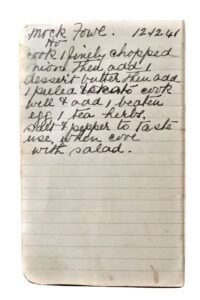 Mock Fowl. 12.12.41
cook 1 finely chopped
onion then add 1
dessert butter then add
1 peeled tomato cook
well & add 1 beaten
egg 1 tea herbs.
Salt & pepper to taste
use when cool
with salad.